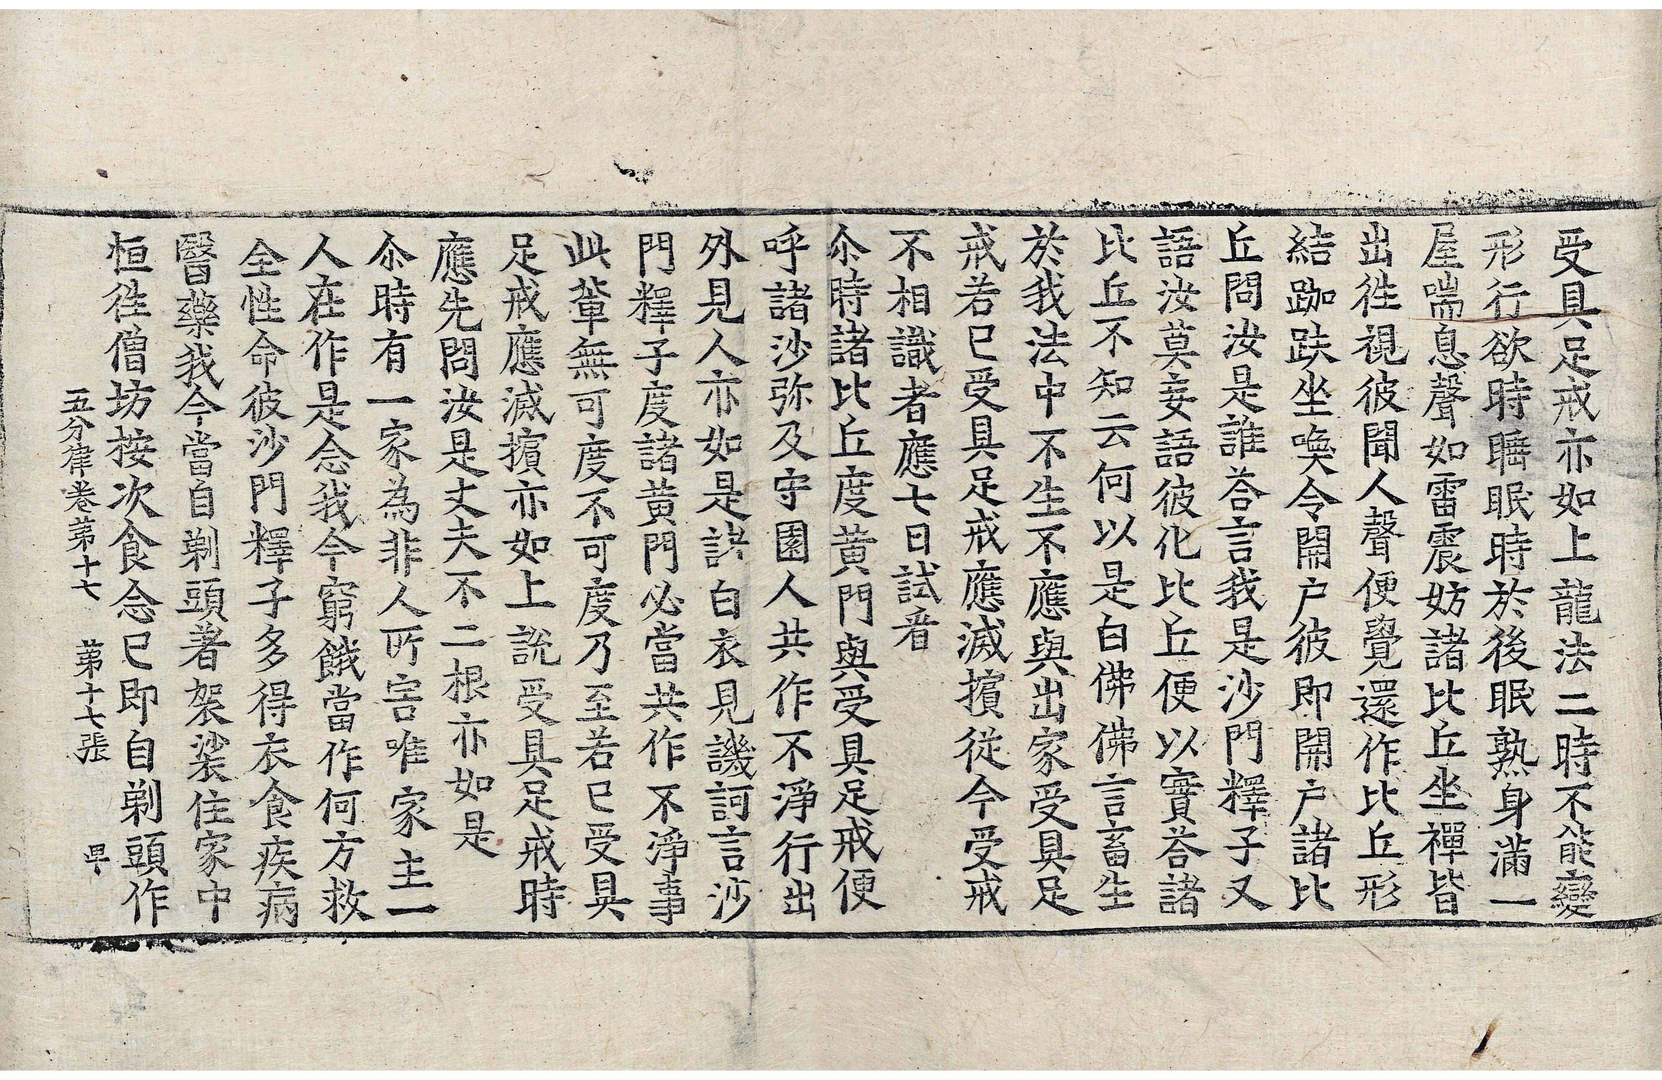 受具足戒亦如上龍法二時不能變
形行欲時睡眠時於後眠熟身滿一
屋喘息聲如雷震妨諸比丘坐禪皆
出徃視彼聞人聲便覺還作比丘形
結跏趺坐喚令開户彼即開户諸比
丘問汝是誰荅言我是沙門釋子又
語汝莫妄語彼化比丘便以實荅諸
比丘不知云何以是白佛佛言畜生
於我法中不生不應與出家受具足
戒若已受具足戒應滅擯從今受戒
不相識者應七日試看
尒時諸比丘度黄門與受具足戒便
呼諸沙弥及守園人共作不淨行出
外見人亦如是諸白衣見譏訶言沙
門釋子度諸黄門必當共作不淨事
此輩無可度不可度乃至若已受具
足戒應滅擯亦如上說受具足戒時
應先問汝是丈夫不二根亦如是
尒時有一家為非人所害唯家主一
人在作是念我今窮餓當作何方救
全性命彼沙門釋子多得衣食疾病
醫藥我今當自剃頭著袈裟住家中
恒徃僧坊按次食念已即自剃頭作
五分律卷第十七　第十七張　卑